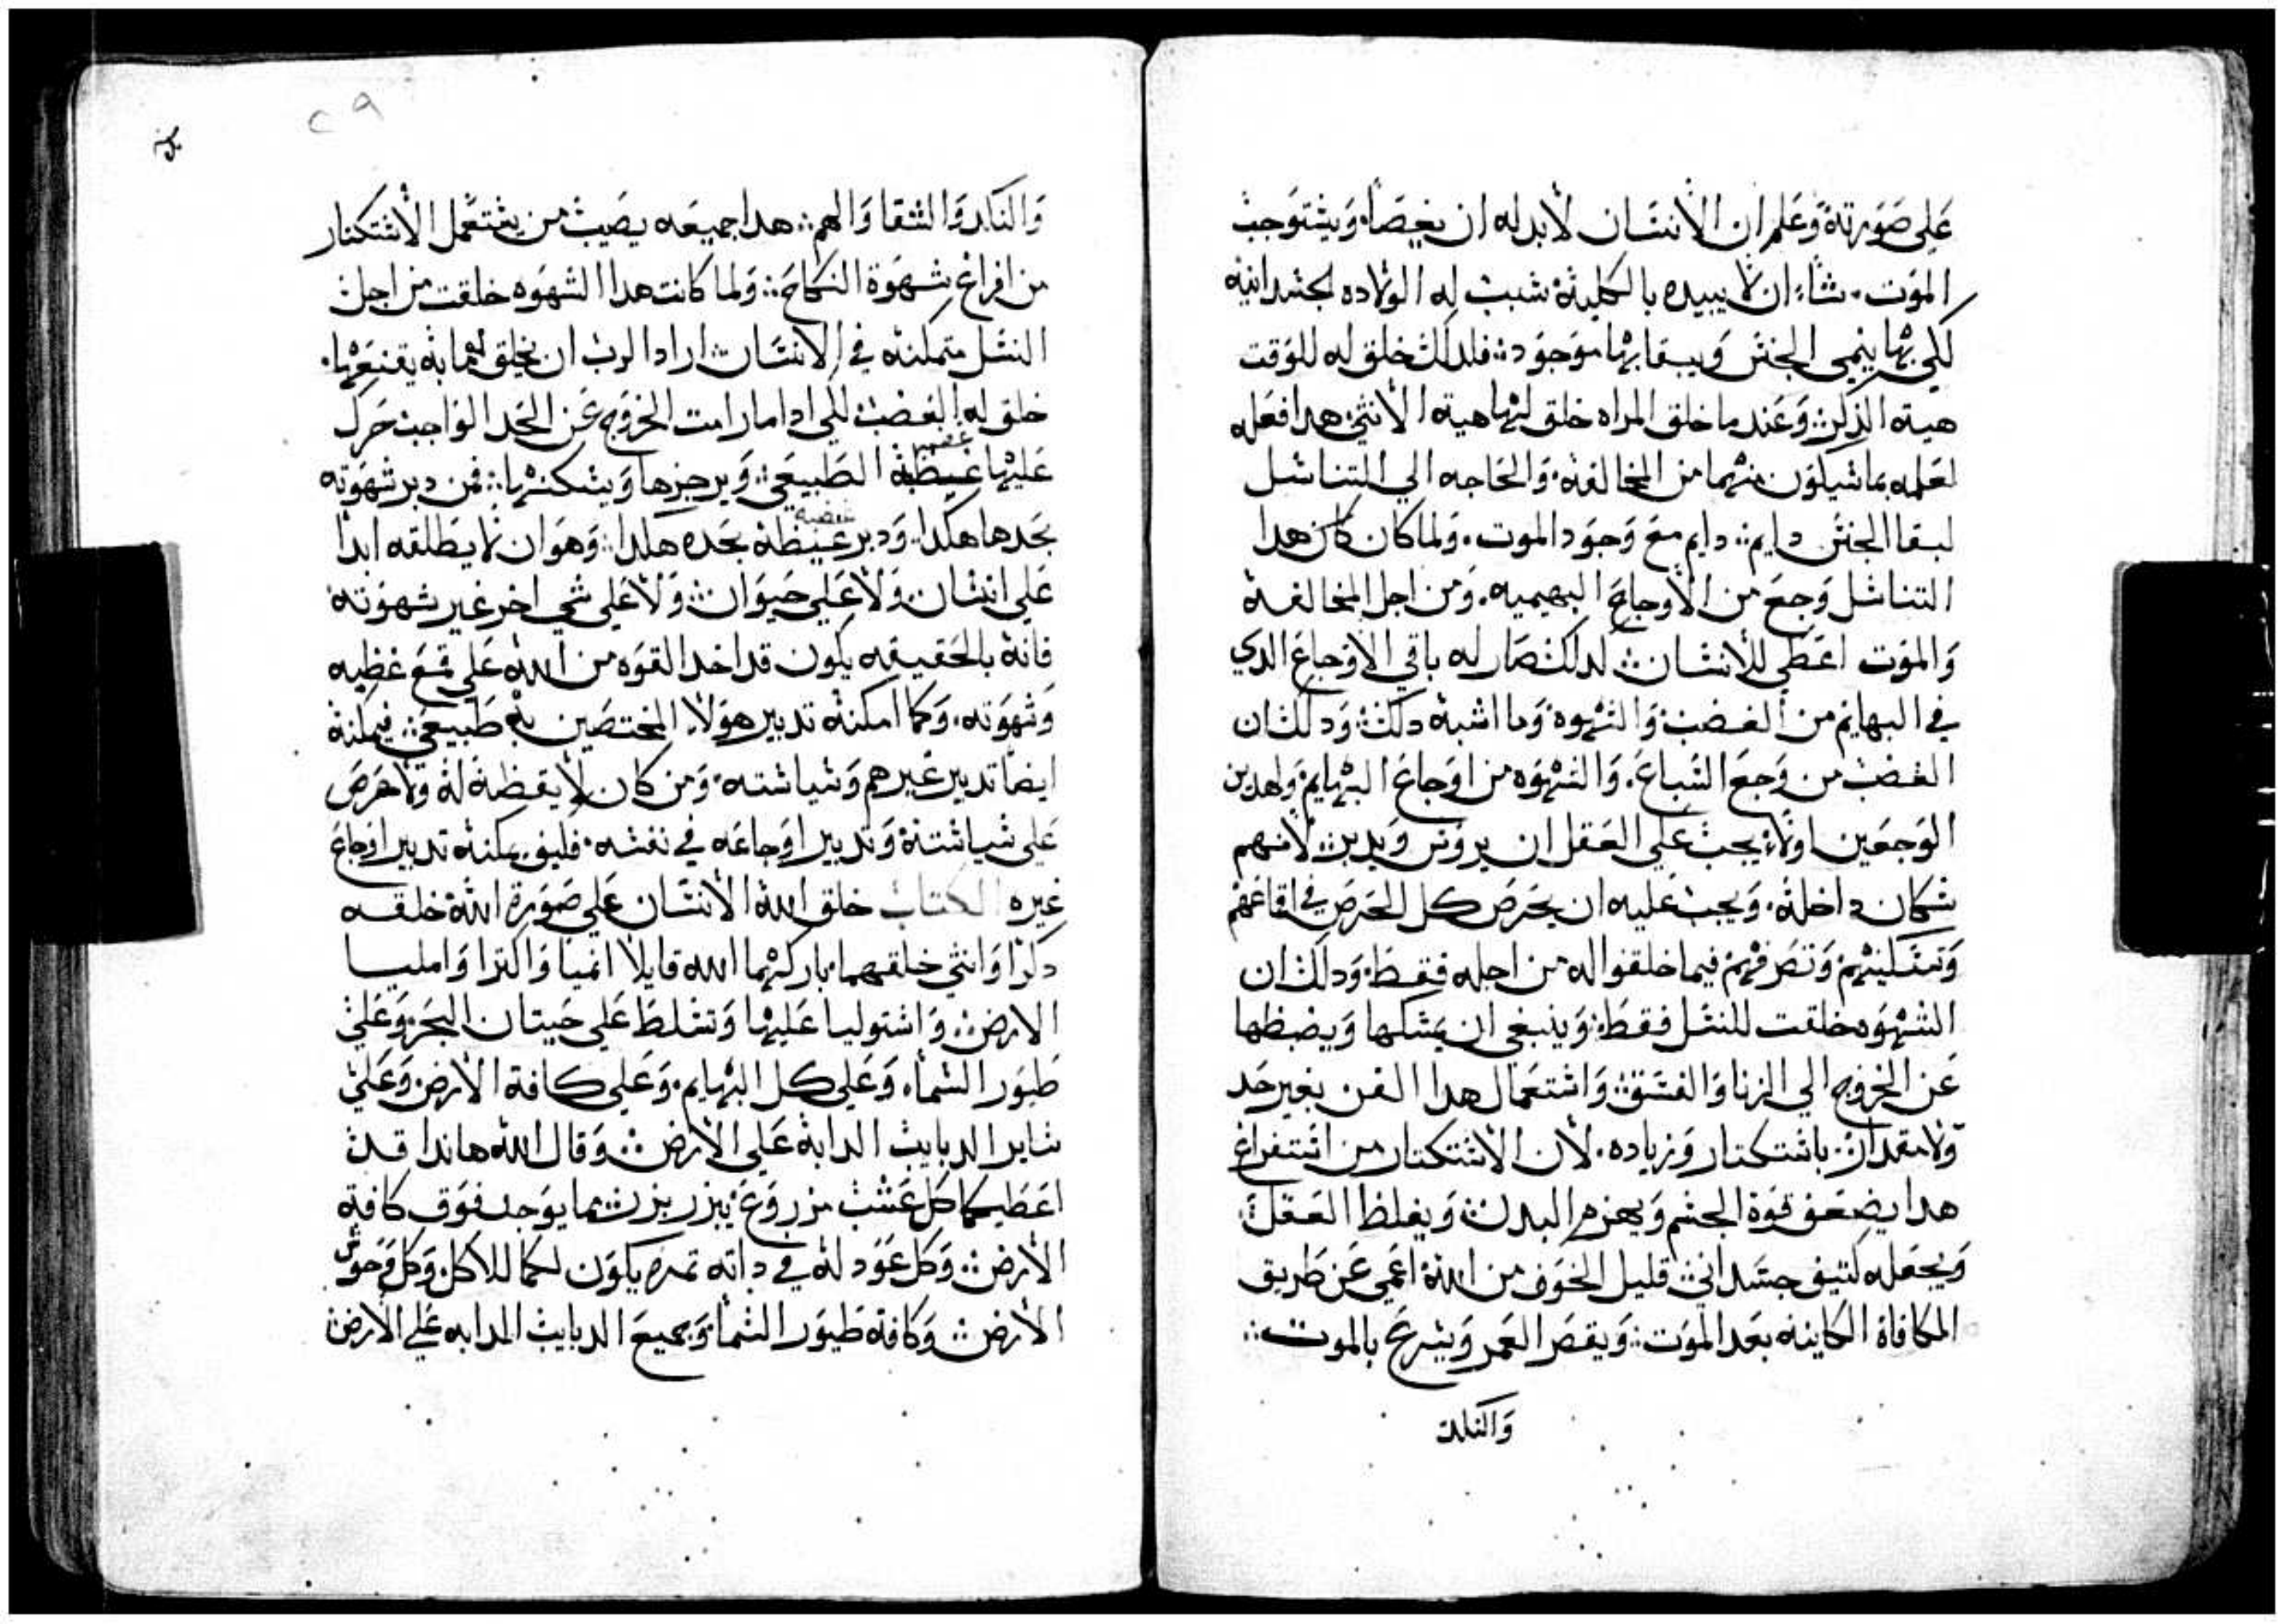 على صورته وعلم ان الانسان لابد له ان يخيصاه ويستوجب
الموت. شاء ان لا يبيده بالكلية سبب له الولاده لجسدانيه
لكي بها ينمي الجنس ويبقا بها موجود: فلدلك خلق له للوقت
هية الذكر: وعند ما خلق المراه خلق لها هية الانثي: هدا فعله
لعلمه بما سيكون منهما من المخالفة. والحاجه الي التناسل
لبقا الجنس دايم: دايم مع وجود الموت. ولما كان كان هدا
التناسل وجع من الاوجاع البهيميه. ومن اجل المخالفة
والموت اعطي للانسان: لدلك صار له باقي الاوجاع الدي
في البهايم من الغضب والشهوه وما اشبه دلك: ودلك ان
الغضب من وجع السباع. والشهوه من اوجاع البهايم ولهدين
الوجعين اولا يجب علي العقل ان يروس ويدبر: لانهم
سكان داخله. ويجب عليه ان يحرص كل الحرص في اقاعهم
وتسكينهم وتصرفهم فيما خلقوا له من اجله فقط. ودلك ان
الشهوه خلقت للنسل فقط: وينبغي ان يمسكها ويضبطها
عن الخروج الي الزنا والفسق: واستعمال هدا الفن بغير حد
ولا مقدار: باستكتار وزياده. لان الاستكتار من استفراغ
هدا يضعف قوة الجسم ويهزم البدن: ويغلظ العقل
ويجعله كتيف جسداني: قليل الخوف من الله اعمي عن طريق
المكافاة الكاينه بعد الموت: ويقصر العمر ويسرع بالموت:
والنكد
٢٩
والنكد والشقا والهم: هدا جميعه يصيب من يستعمل الاستكتار
من افراغ شهوة النكاح: ولما كانت هدا الشهوه خلقت من اجل
النسل متمكنه في الانسان: اراد الرب ان يخلق لها مابه يقنعها.
خلق له الغضب لكي ادا ما رامت الخروج عن الحد الواجب حرك
عليها غيظة الطبيعي: ويرجزها ويسكنها: فمن دبر شهوته
بحدها هكدا. ودبر غيظه بحده هكدا: وهو ان لا يطلقه ابدا
علي انسان ولا علي حيوان: ولا علي شي اخر غير شهوته
فانه بالحقيقه يكون قد اخد القوه من الله علي قمع غظبه
وشهوته. وكما امكنه تدبير هولاء المختصين به طبيعي: فيمكنه
ايضا تدبير غيرهم وسياسته. ومن كان لا يقظه له ولا حرص
علي سياسته وتدبير اوجاعه في نفسه. فكيف يمكنه تدبير اوجاع
غيره الكتاب خلق الله الانسان علي صورة الله خلقه
دكرا وانثي خلقهما. باركهما الله قايلا انميا واكترا وامليا
الارض: واستوليا عليها وتسلط علي حيتان البحر وعلي
طيور السماء وعلي كل البهايم. وعلي كافة الارض وعلي
ساير الدبايب الدابة علي الارض: وقال الله هاندا قد
اعطيتكما كل عشب مزروع يبزر بزر: مما يوجد فوق كافة
الارض: وكل عود له في داته تمره يكون لكما للاكل. وكل وحوش
الارض: وكافة طيور السما وجميع الدبايب الدابه علي الارض